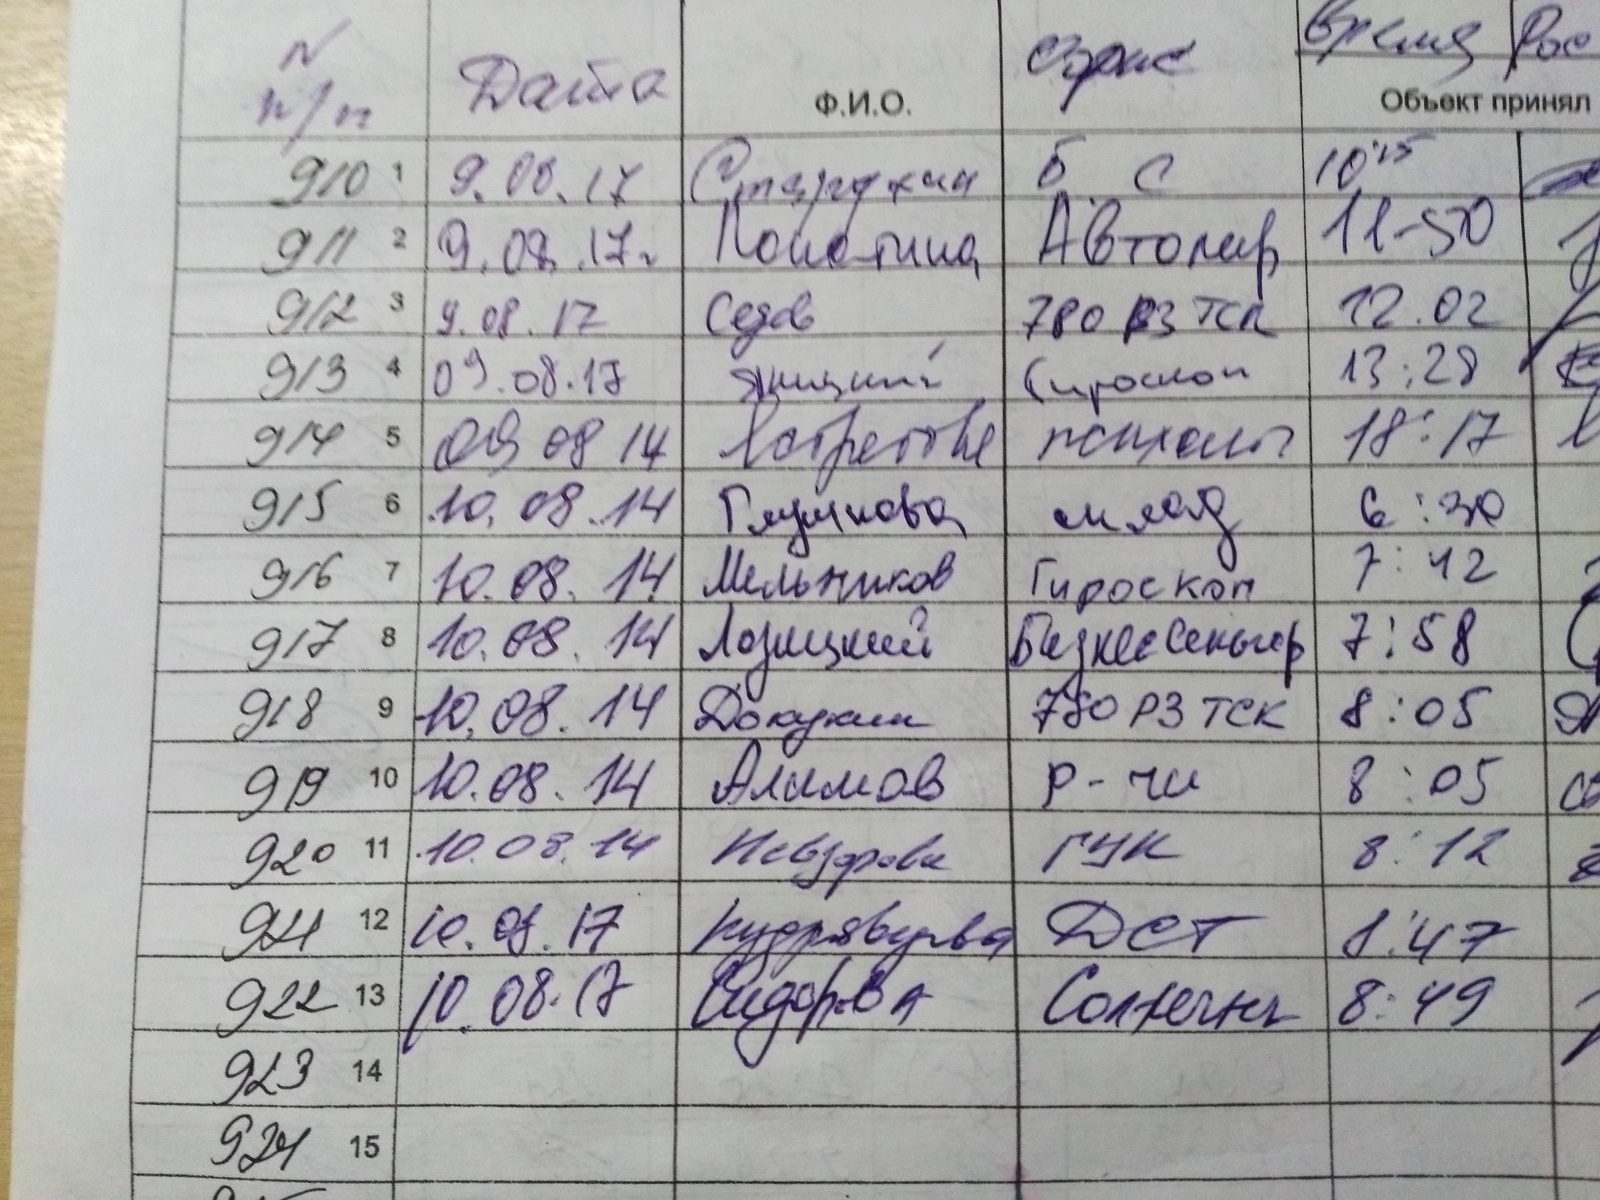 N Дата офис Время Рос
п/п Ф.И.О. Объект принял
910 1 9.08.17 Старухин Б С 10 15
911 2 9.08.17г. 11-50
912 3 9.08.17 Седов 780 РЗ ТСК 12.02
913 4 09.08.17 Яницкий Гироскоп 13:28
914 5 09 08 14 психолог 18:17
915 6 10.08.14 Глушкова склад 6:30
916 7 10.08.14 Мельников Гироскоп 7:42
917 8 10.08.14 Лозицкий Бизнес Сеньер 7:58
918 9 10.08.14 Докукин 780 РЗ ТСК 8:05
919 10 10.08.14 Алимов Р-чи 8:05
920 11 10.08.14 Невзорова ГУК 8:12
921 12 10.08.17 Кудрявцева ДСТ 8:47
922 13 10.08.17 Сидорова 8:49
923 14
924 15